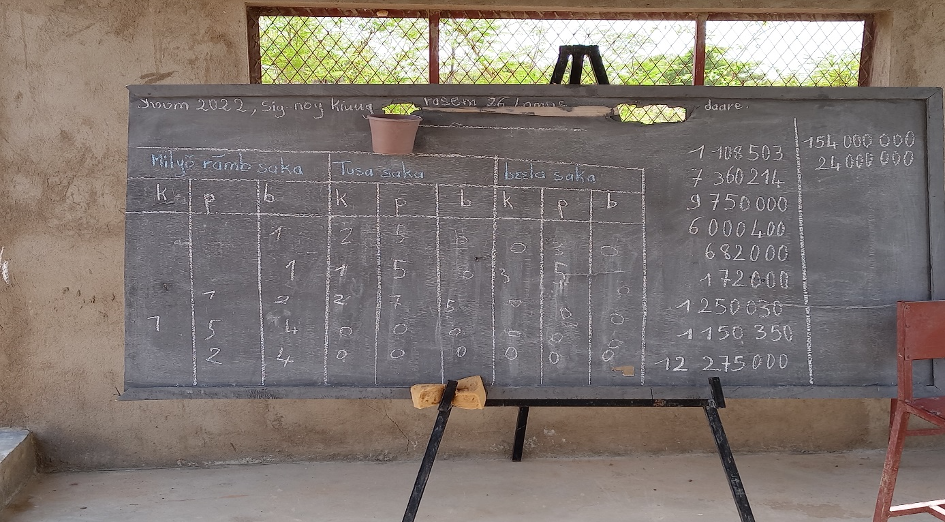 Yʋʋm 2022, Sig-noy kiuug rasem 26 daare.
Milyõ rãmb saka Tusa saka bʋsla saka
k p b k p b k p b
1 2 5 0 0 0
1 1 5 0 3 5 0
1 2 2 7 5 0 0 0
1 5 4 0 0 0 0 0 0
2 4 0 0 0 0 0 0
1 108 503
7 360 214
9 750 000
6 000 400
682 000
172 000
1 250 030
1 150 350
12 275 000
154 000 000
24 000 000